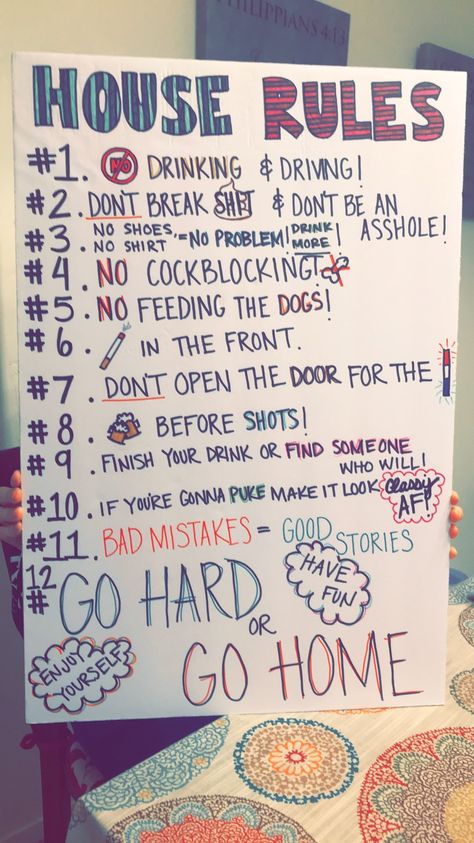 PHILIPPIANS 4:13
HOUSE RULES
#1. NO DRINKING & DRIVING!
#2. DON'T BREAK SHIT & DON'T BE AN ASSHOLE!
#3. NO SHOES, NO SHIRT, = NO PROBLEM! DRINK MORE!
#4. NO COCKBLOCKING!
#5. NO FEEDING THE DOGS!
#6. IN THE FRONT.
#7. DON'T OPEN THE DOOR FOR THE
#8. BEFORE SHOTS!
#9. FINISH YOUR DRINK OR FIND SOMEONE
WHO WILL!
#10. IF YOU'RE GONNA PUKE MAKE IT LOOK classy AF!
#11. BAD MISTAKES = GOOD STORIES
#12 GO HARD
HAVE FUN
OR
ENJOY YOURSELF
GO HOME